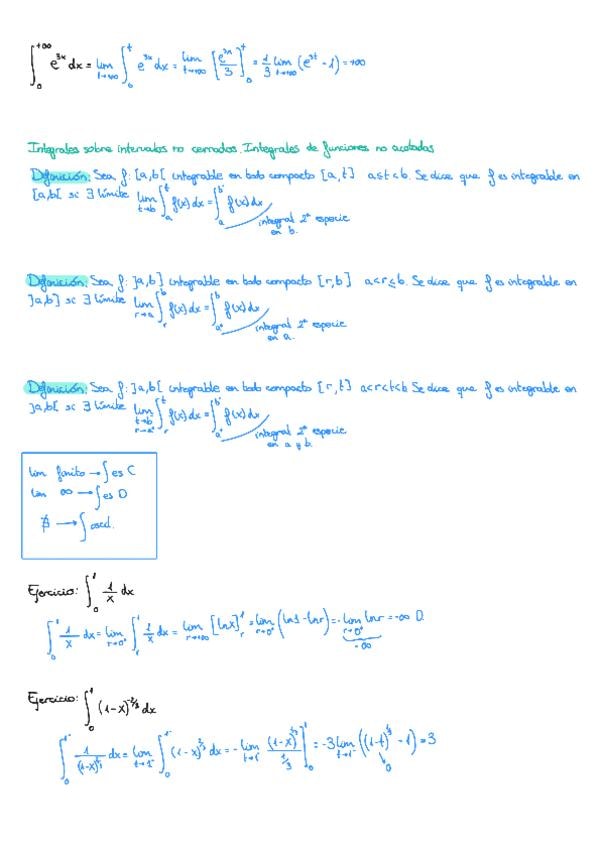 ∫₀^{+∞} e^{3x} dx = lim_{t→+∞} ∫₀^t e^{3x} dx = lim_{t→+∞} [e^{3x}/3]₀^t = 1/3 lim_{t→+∞} (e^{3t} - 1) = +∞
Integrales sobre intervalos no cerrados. Integrales de funciones no acotadas
Definición: Sea f: [a,b[ integrable en todo compacto [a,t] a≤t<b. Se dice que f es integrable en
[a,b[ si ∃ límite lim_{t→b} ∫_a^t f(x)dx = ∫_a^{b-} f(x)dx
integral 2ª especie
en b.
Definición: Sea f: ]a,b] integrable en todo compacto [r,b] a<r≤b. Se dice que f es integrable en
]a,b] si ∃ límite lim_{r→a} ∫_r^b f(x)dx = ∫_{a+}^b f(x)dx
integral 2ª especie
en a.
Definición: Sea f: ]a,b[ integrable en todo compacto [r,t] a<r<t<b Se dice que f es integrable en
]a,b[ si ∃ límite lim_{t→b, r→a} ∫_r^t f(x)dx = ∫_{a+}^{b-} f(x)dx
integral 2ª especie
en a y b.
lim finito → ∫ es C
lim ∞ → ∫ es D
∄ → ∫ oscil.
Ejercicio: ∫₀^1 1/x dx
∫₀^1 1/x dx = lim_{r→0+} ∫_r^1 1/x dx = lim_{r→+∞} [lnx]_r^1 = lim_{r→0+} (ln1 - lnr) = - lim_{r→0+} lnr = -∞ D
-∞
Ejercicio: ∫₀^1 (1-x)^{-2/3} dx
∫₀^{1-} 1/(1-x)^{2/3} dx = lim_{t→1-} ∫₀^{1-} (1-x)^{2/3} dx = - lim_{t→1-} (1-x)^{1/3}/(1/3) |₀^1 = -3 lim_{t→1-} ((1-t)^{1/3} - 1) = 3
0